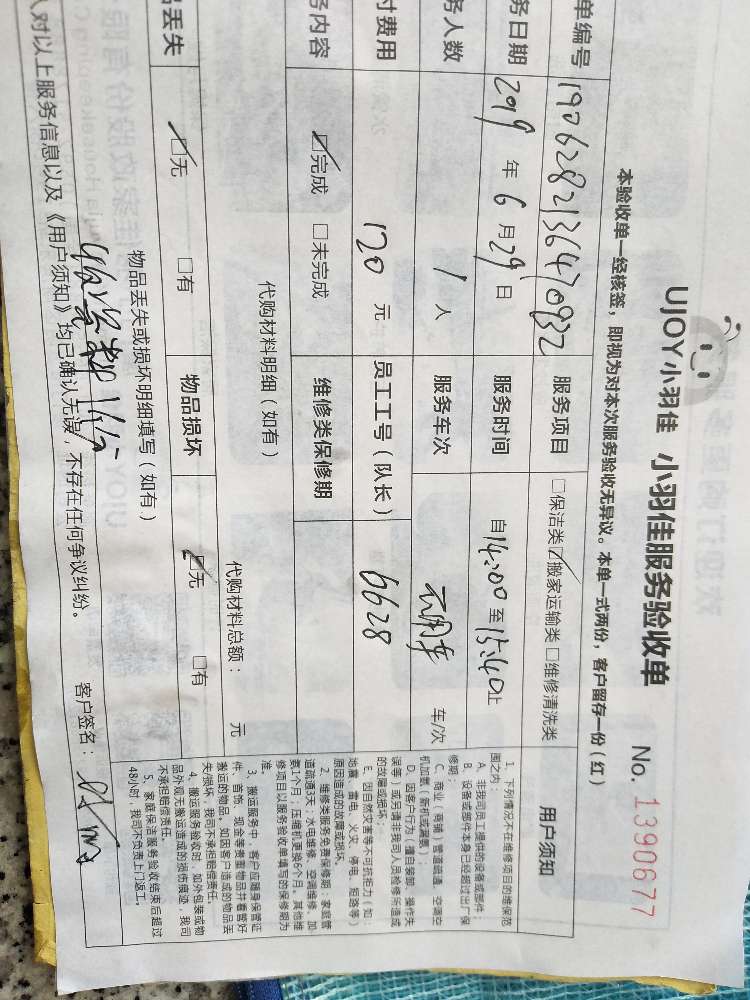 UJOY小羽佳 小羽佳服务验收单 No. 1390677
本验收单一经核签，即视为对本次服务验收无异议。本单一式两份，客户留存一份（红）
单编号 1906282136470932 服务项目 □保洁类 ☑搬家运输类 □维修清洗类
务日期 2019 年 6 月 29 日 服务时间 自14:00 至 15:40止
务人数 1 人 服务车次 车/次
付费用 120 元 员工工号（队长） 6628
务内容 ☑完成 □未完成 维修类保修期
代购材料明细（如有） 代购材料总额： 元
品丢失 ☑无 □有 物品损坏 ☑无 □有
物品丢失或损坏明细填写（如有）
人对以上服务信息以及《用户须知》均已确认无误，不存在任何争议纠纷。
客户签名：
用户须知
1、下列情况不在维修项目的维保范
围之内：
A、非我司员工提供的设备或部件；
B、设备或部件本身已经超过出厂保
修期；
C、商业（商铺）管道疏通、空调空
机加氨（新机试漏氨）；
D、因客户行为，擅自装卸、操作失
误等，或另请非我司人员检修所造成
的故障或损坏；
E、因自然灾害等不可抗拒力（如：
地震、雷电、火灾、停电、短路等）
原因造成的故障或损坏。
2、维修类服务免费保修期：家庭管
道疏通3天，水电维修、空调维修、加
氨1个月；压缩机更换6个月，其他维
修项目以服务验收单填写的保修期为
准。
3、搬运服务中，客户应随身保管证
件、首饰、现金等贵重物品并看管好
搬运的物品，如因客户造成的物品丢
失/损坏，我司不承担赔偿责任。
4、搬运服务验收时，如外包装或物
品外观无搬运造成的损伤痕迹，我司
不承担赔偿责任。
5、家庭保洁服务验收结束后超过
48小时，我司不负责上门返工。